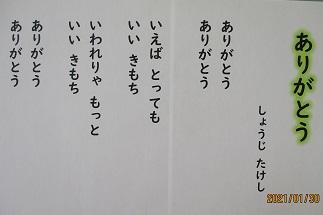 ありがとう
しょうじ たけし
ありがとう
ありがとう
いえば とっても
いい きもち
いわれりゃ もっと
いい きもち
ありがとう
ありがとう
2021/01/30